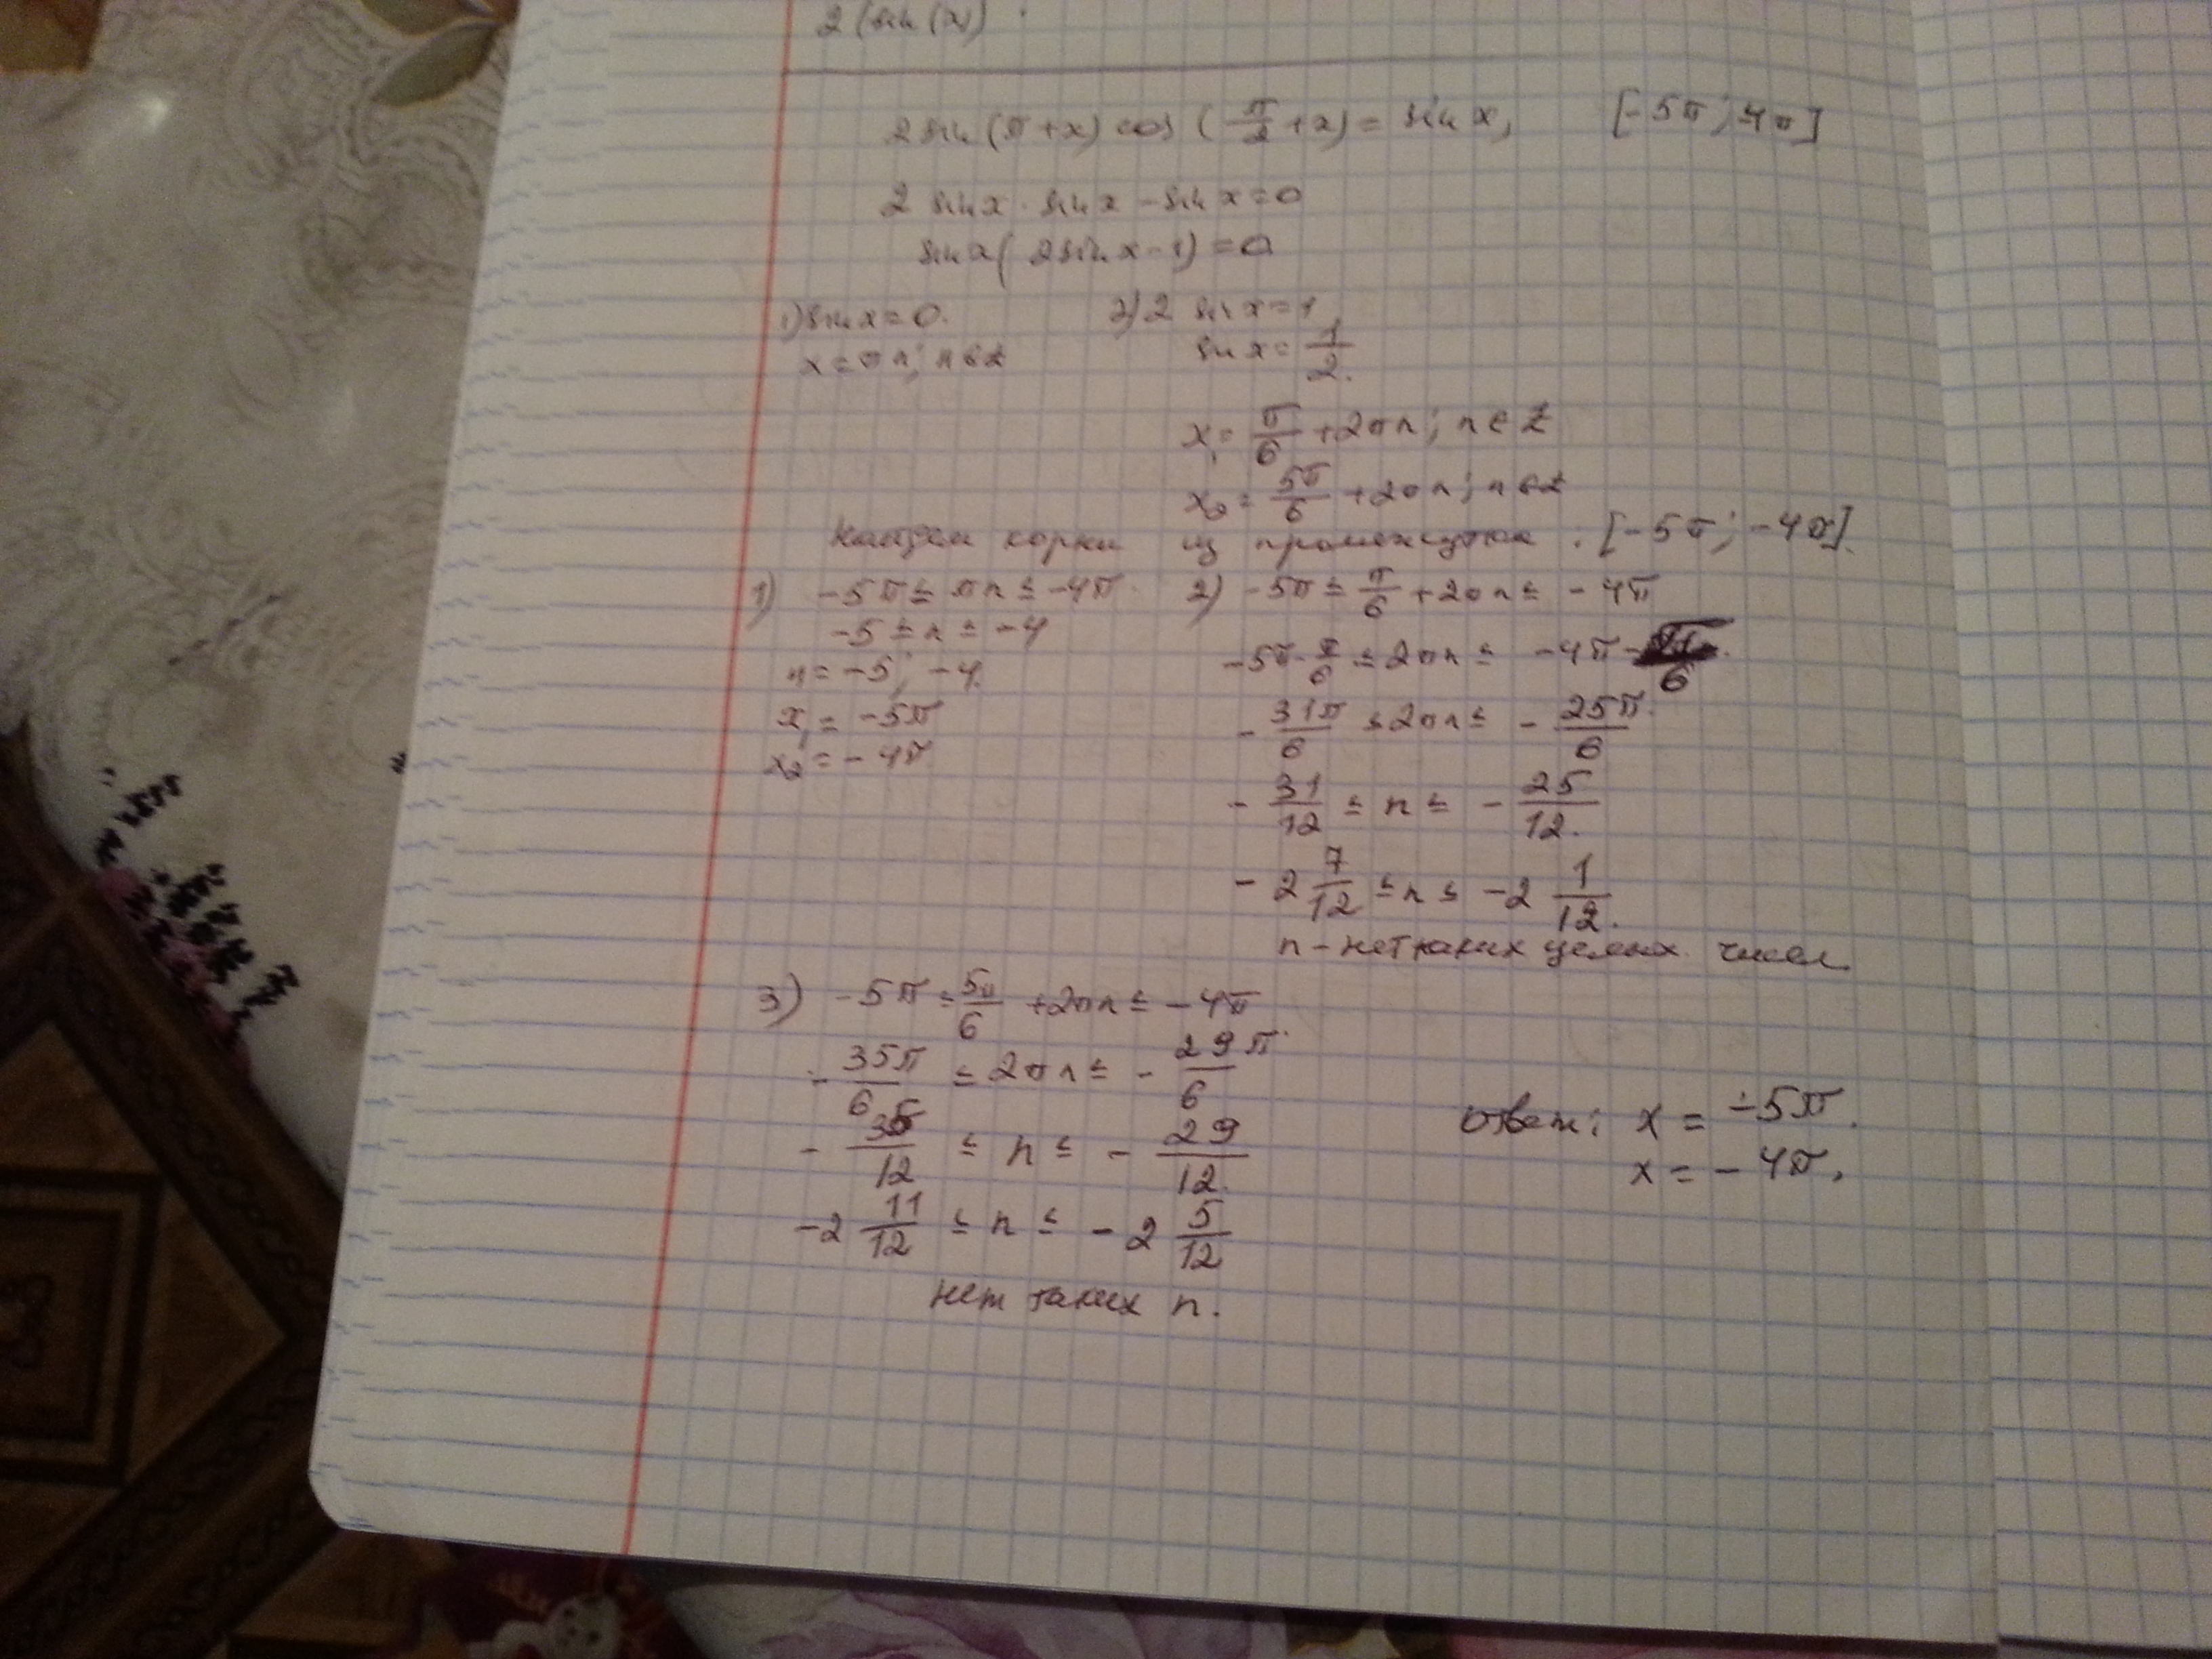 2 (sin(x))
2 sin (π + x) cos (π/2 + x) = sin x, [-5π; 4π]
2 sin x · sin x - sin x = 0
sin x (2 sin x - 1) = 0
1) sin x = 0.
x = πn; n ∈ Z
2) 2 sin x = 1
sin x = 1/2.
x₁ = π/6 + 2πn; n ∈ Z
x₂ = 5π/6 + 2πn; n ∈ Z
Найдем корни из промежутка: [-5π; -4π].
1) -5π ≤ πn ≤ -4π
-5 ≤ n ≤ -4
n = -5; -4.
x₁ = -5π
x₂ = -4π
2) -5π ≤ π/6 + 2πn ≤ -4π
-5π - π/6 ≤ 2πn ≤ -4π - π/6
-31π/6 ≤ 2πn ≤ -25π/6
-31/12 ≤ n ≤ -25/12.
-2 7/12 ≤ n ≤ -2 1/12.
n - нет таких целых чисел
3) -5π ≤ 5π/6 + 2πn ≤ -4π
-35π/6 ≤ 2πn ≤ -29π/6
-35/12 ≤ n ≤ -29/12.
-2 11/12 ≤ n ≤ -2 5/12
нет таких n.
ответ: x = -5π.
x = -4π.